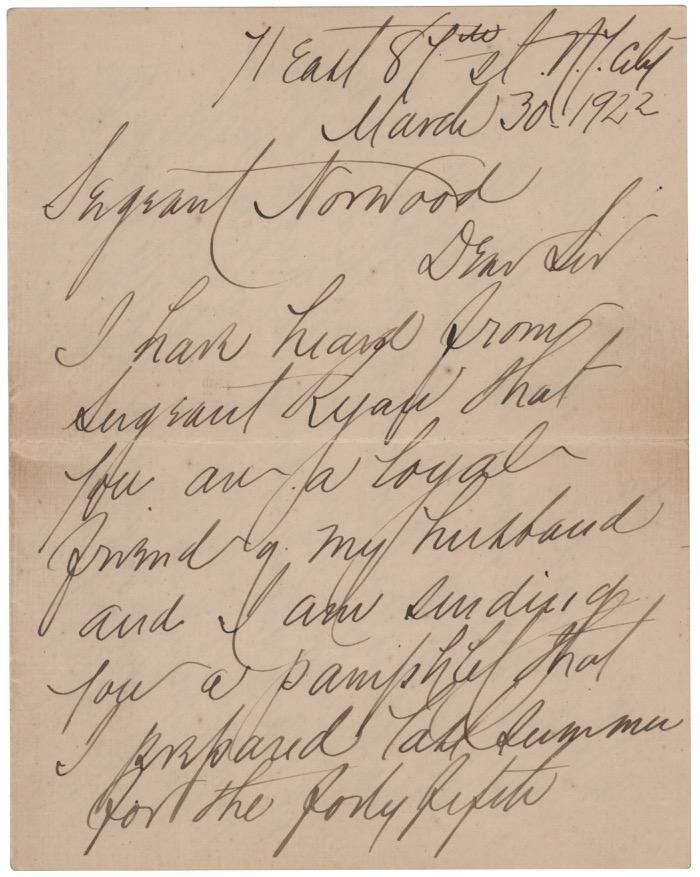 71 East 87th St. N.Y. City
March 30. 1922
Sergeant Norwood
Dear Sir
I have heard from
Sergeant Ryan that
you are a loyal
friend of my husband
and I am sending
you a pamphlet that
I prepared last summer
for the forty fifth